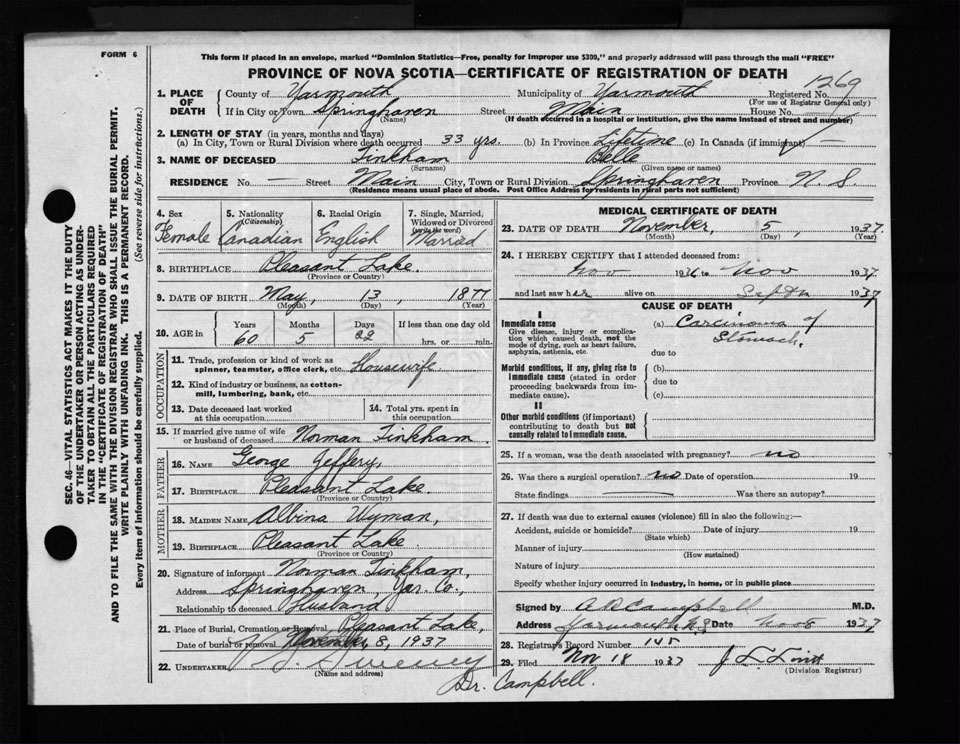 FORM 6
This form if placed in an envelope, marked "Dominion Statistics—Free, penalty for improper use $300," and properly addressed will pass through the mail "FREE"
PROVINCE OF NOVA SCOTIA—CERTIFICATE OF REGISTRATION OF DEATH
1269
1. PLACE OF DEATH County of Yarmouth Municipality of Yarmouth Registered No.
(For use of Registrar General only)
If in City or Town Springhaven Street Main House No.
(Name) (If death occurred in a hospital or institution, give the name instead of street and number)
2. LENGTH OF STAY (in years, months and days)
(a) In City, Town or Rural Division where death occurred 33 yrs. (b) In Province Lifetime (c) In Canada (if immigrant) —
3. NAME OF DECEASED Tinkham Belle
(Surname) (Given name or names)
RESIDENCE No. — Street Main City, Town or Rural Division Springhaven Province N. S.
(Residence means usual place of abode. Post Office Address for residents in rural parts not sufficient)
4. Sex Female
5. Nationality (Citizenship) Canadian
6. Racial Origin English
7. Single, Married, Widowed or Divorced (write the word) Married
8. BIRTHPLACE Pleasant Lake.
(Province or Country)
9. DATE OF BIRTH May, 13, 1877
(Month) (Day) (Year)
10. AGE in Years 60 Months 5 Days 22 If less than one day old hrs. or min.
OCCUPATION
11. Trade, profession or kind of work as spinner, teamster, office clerk, etc. Housewife
12. Kind of industry or business, as cotton-mill, lumbering, bank, etc.
13. Date deceased last worked at this occupation
14. Total yrs. spent in this occupation
15. If married give name of wife or husband of deceased Norman Tinkham.
FATHER
16. NAME George Jeffery,
17. BIRTHPLACE Pleasant Lake
MOTHER
18. MAIDEN NAME Albina Wyman,
19. BIRTHPLACE Pleasant Lake.
(Province or Country)
20. Signature of informant Norman Tinkham,
Address Springhaven, Yar. Co.,
Relationship to deceased Husband
21. Place of Burial, Cremation or Removal Pleasant Lake,
Date of burial or removal November 8, 1937
22. UNDERTAKER Sweeney
(Name and address)
Dr. Campbell.
MEDICAL CERTIFICATE OF DEATH
23. DATE OF DEATH November, 5, 1937.
(Month) (Day) (Year)
24. I HEREBY CERTIFY that I attended deceased from:
Nov 1936 to Nov 1937
and last saw her alive on Sept 1937
CAUSE OF DEATH
I
Immediate cause (a) Carcinoma of
Give disease, injury or complication which caused death, not the mode of dying, such as heart failure, asphyxia, asthenia, etc. Stomach.
due to
Morbid conditions, if any, giving rise to immediate cause (stated in order proceeding backwards from immediate cause). (b)
due to
(c)
II
Other morbid conditions (if important) contributing to death but not causally related to immediate cause.
25. If a woman, was the death associated with pregnancy? no
26. Was there a surgical operation? no Date of operation 19
State findings — Was there an autopsy?
27. If death was due to external causes (violence) fill in also the following:—
Accident, suicide or homicide? Date of injury 19
(State which)
Manner of injury
(How sustained)
Nature of injury
Specify whether injury occurred in industry, in home, or in public place
Signed by A R Campbell M.D.
Address Yarmouth N.S Date Nov 8 1937
28. Registrar's Record Number 145
29. Filed Nov 18 1937
(Division Registrar)
SEC. 46—VITAL STATISTICS ACT MAKES IT THE DUTY
OF THE UNDERTAKER OR PERSON ACTING AS UNDER-
TAKER TO OBTAIN ALL THE PARTICULARS REQUIRED
IN THE "CERTIFICATE OF REGISTRATION OF DEATH"
AND TO FILE THE SAME WITH THE DIVISION REGISTRAR WHO SHALL ISSUE THE BURIAL PERMIT.
WRITE PLAINLY WITH UNFADING INK. THIS IS A PERMANENT RECORD.
Every item of information should be carefully supplied. (See reverse side for instructions.)